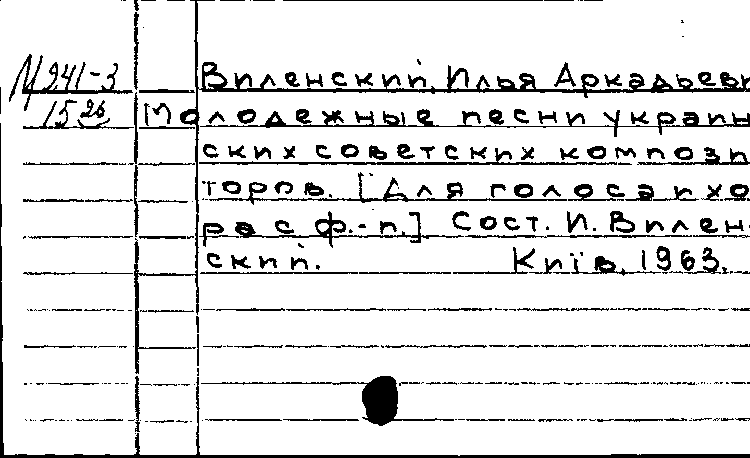 М 241-3 Виленский, Илья Аркадьеви
15 26 Молодежные песни украин
ских советских компози
торов. [Для голоса и хо
ра с ф.-п.]. Сост. И. Вилен-
ский. Київ, 1963.